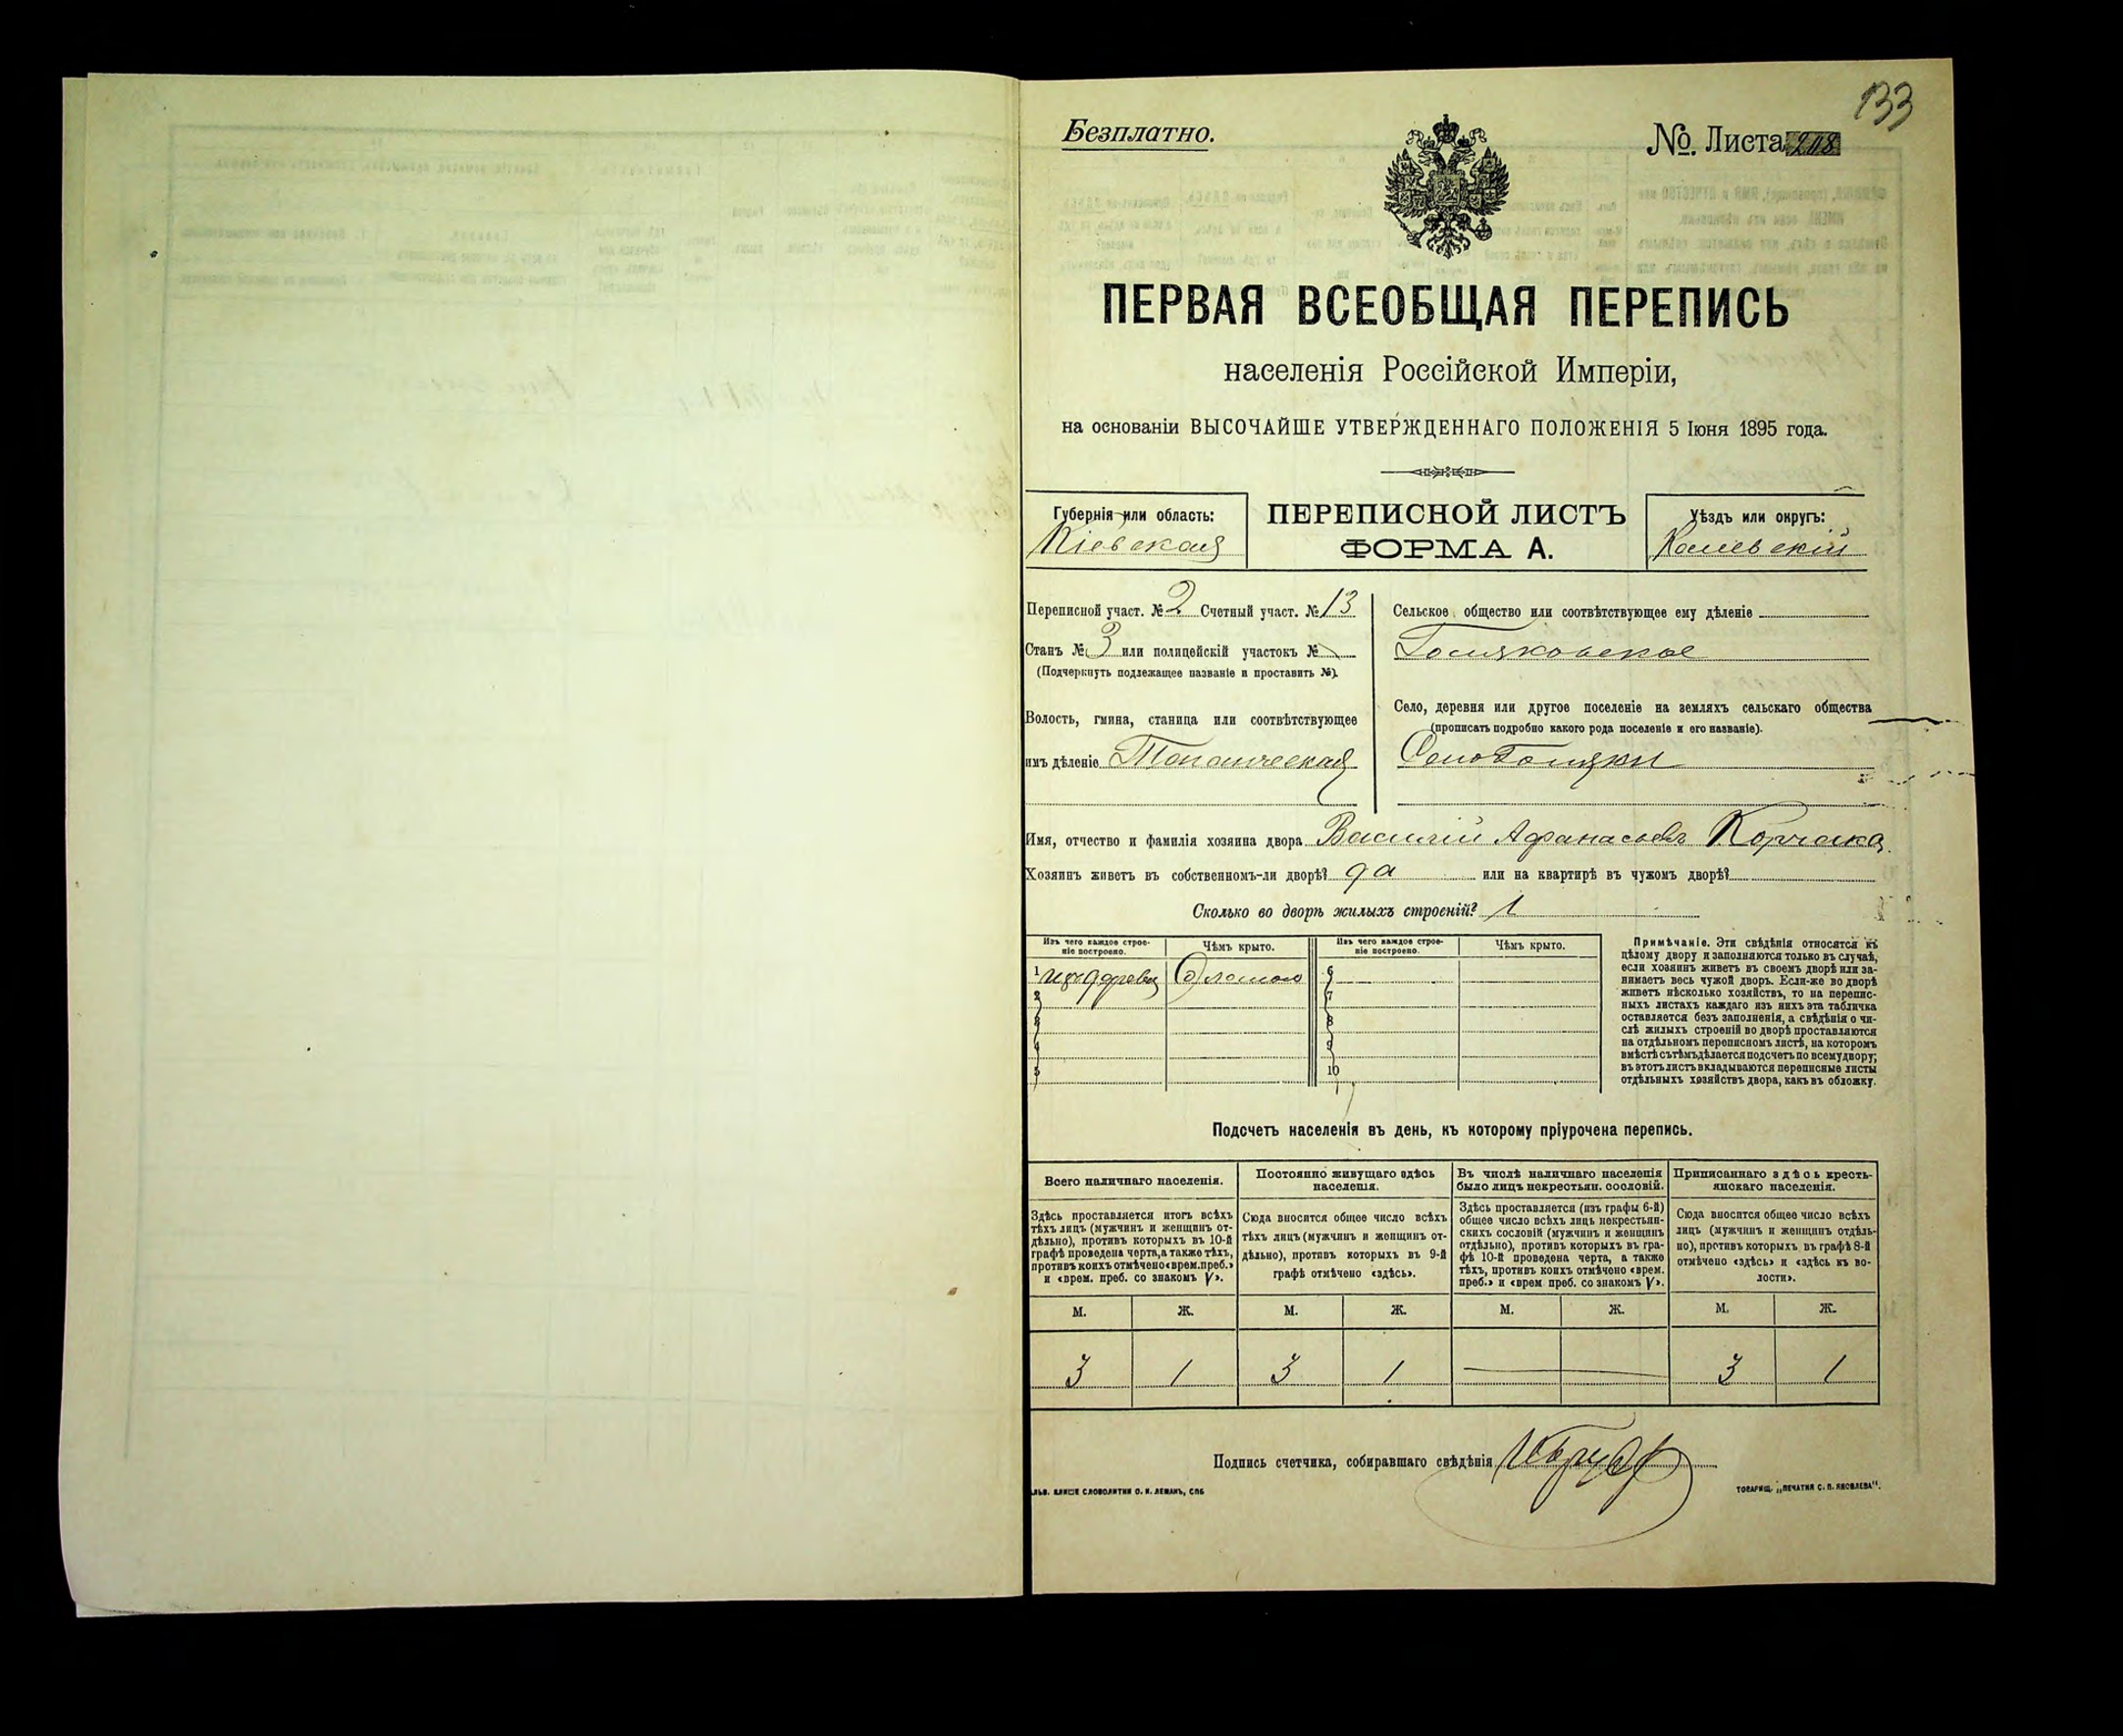 133
Безплатно.
№. Листа 208
ПЕРВАЯ ВСЕОБЩАЯ ПЕРЕПИСЬ
населенія Россійской Имперіи,
на основаніи ВЫСОЧАЙШЕ УТВЕРЖДЕННАГО ПОЛОЖЕНІЯ 5 Іюня 1895 года.
Губернія или область:
Кіевская
ПЕРЕПИСНОЙ ЛИСТЪ
ФОРМА А.
Уѣздъ или округъ:
Каневскій
Переписной участ. № 2 Счетный участ. № 13
Станъ № 3 или полицейскій участокъ №
(Подчеркнуть подлежащее названіе и проставить №).
Волость, гмина, станица или соотвѣтствующее
имъ дѣленіе
Сельское общество или соотвѣтствующее ему дѣленіе
Село, деревня или другое поселеніе на земляхъ сельскаго общества
(прописать подробно какого рода поселеніе и его названіе).
Село
Имя, отчество и фамилія хозяина двора Василій Афанасьевъ
Хозяинъ живетъ въ собственномъ-ли дворѣ? да или на квартирѣ въ чужомъ дворѣ?
Сколько во дворѣ жилыхъ строеній? 1
Изъ чего каждое строе-
ніе построено.
Чѣмъ крыто.
Изъ чего каждое строе-
ніе построено.
Чѣмъ крыто.
1 изъ дерева Соломою 6
2 7
3 8
4 9
5 10
Примѣчаніе. Эти свѣдѣнія относятся къ
цѣлому двору и заполняются только въ случаѣ,
если хозяинъ живетъ въ своемъ дворѣ или за-
нимаетъ весь чужой дворъ. Если-же во дворѣ
живетъ нѣсколько хозяйствъ, то на перепис-
ныхъ листахъ каждаго изъ нихъ эта табличка
оставляется безъ заполненія, а свѣдѣнія о чи-
слѣ жилыхъ строеній во дворѣ проставляются
на отдѣльномъ переписномъ листѣ, на которомъ
вмѣстѣ съ тѣмъ дѣлается подсчетъ по всему двору;
въ этотъ листъ вкладываются переписные листы
отдѣльныхъ хозяйствъ двора, какъ въ обложку.
Подсчетъ населенія въ день, къ которому пріурочена перепись.
Всего наличнаго населенія.
Здѣсь проставляется итогъ всѣхъ
тѣхъ лицъ (мужчинъ и женщинъ от-
дѣльно), противъ которыхъ въ 10-й
графѣ проведена черта, а также тѣхъ,
противъ коихъ отмѣчено «врем. преб.»
и «врем. преб. со знакомъ V».
Постоянно живущаго здѣсь
населенія.
Сюда вносится общее число всѣхъ
тѣхъ лицъ (мужчинъ и женщинъ от-
дѣльно), противъ которыхъ въ 9-й
графѣ отмѣчено «здѣсь».
Въ числѣ наличнаго населенія
было лицъ некрестьян. сословій.
Здѣсь проставляется (изъ графы 6-й)
общее число всѣхъ лицъ некрестьян-
скихъ сословій (мужчинъ и женщинъ
отдѣльно), противъ которыхъ въ гра-
фѣ 10-й проведена черта, а также
тѣхъ, противъ коихъ отмѣчено «врем.
преб.» и «врем преб. со знакомъ V».
Приписаннаго здѣсь кресть-
янскаго населенія.
Сюда вносится общее число всѣхъ
лицъ (мужчинъ и женщинъ отдѣль-
но), противъ которыхъ въ графѣ 8-й
отмѣчено «здѣсь» и «здѣсь къ во-
лости».
М. Ж. М. Ж. М. Ж. М. Ж.
3 1 3 1 3 1
Подпись счетчика, собиравшаго свѣдѣнія
КЛИШЕ СЛОВОЛИТНИ О. И. ЛЕМАНЪ, СПБ
ТОВАРИЩ. „ПЕЧАТНЯ С. П. ЯКОВЛЕВА".